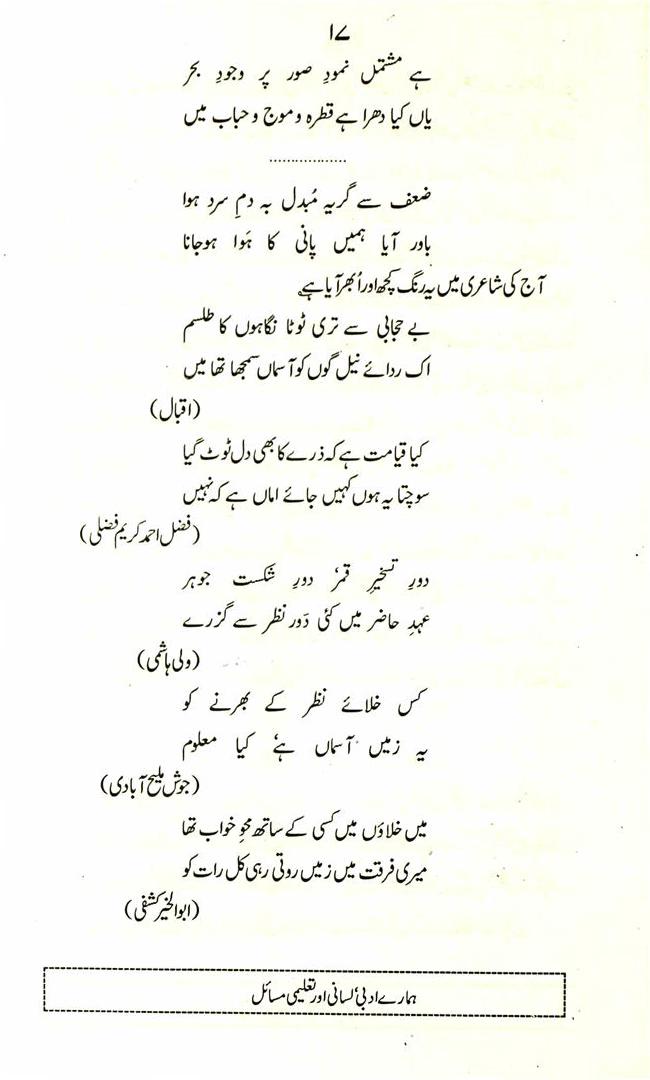 ۱۷
ہے مشتمل نمودِ صور پر وجودِ بحر
یاں کیا دھرا ہے قطرہ و موج و حباب میں
..................
ضعف سے گریہ مُبدل بہ دمِ سرد ہوا
باور آیا ہمیں پانی کا ہَوا ہوجانا
آج کی شاعری میں یہ رنگ کچھ اور اُبھر آیا ہے۔
بے حجابی سے تری ٹوٹا نگاہوں کا طلسم
اک ردائے نیل گوں کو آسماں سمجھا تھا میں
(اقبال)
کیا قیامت ہے کہ ذرے کا بھی دل ٹوٹ گیا
سوچتا یہ ہوں کہیں جائے اماں ہے کہ نہیں
(فضل احمد کریم فضلی)
دورِ تسخیرِ قمر‘ دورِ شکست جوہر
عہدِ حاضر میں کئی دَور نظر سے گزرے
(ولی ہاشمی)
کس خلائے نظر کے بھرنے کو
یہ زمیں آسماں ہے‘ کیا معلوم
(جوش ملیح آبادی)
میں خلاؤں میں کسی کے ساتھ محوِ خواب تھا
میری فرقت میں زمیں روتی رہی کل رات کو
(ابوالخیر کشفی)
ہمارے ادبی‘ لسانی اور تعلیمی مسائل